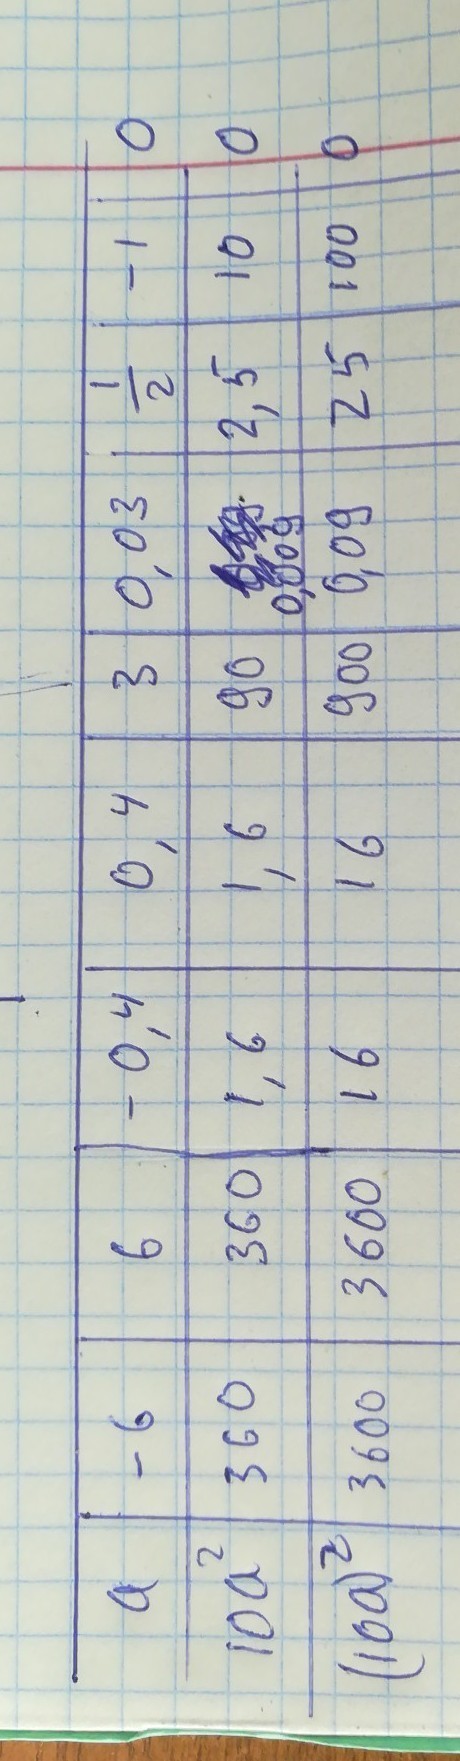 a -6 6 -0,4 0,4 3 0,03 1/2 -1 0
10a² 360 360 1,6 1,6 90 0,009 2,5 10 0
(10a)² 3600 3600 16 16 900 0,09 25 100 0